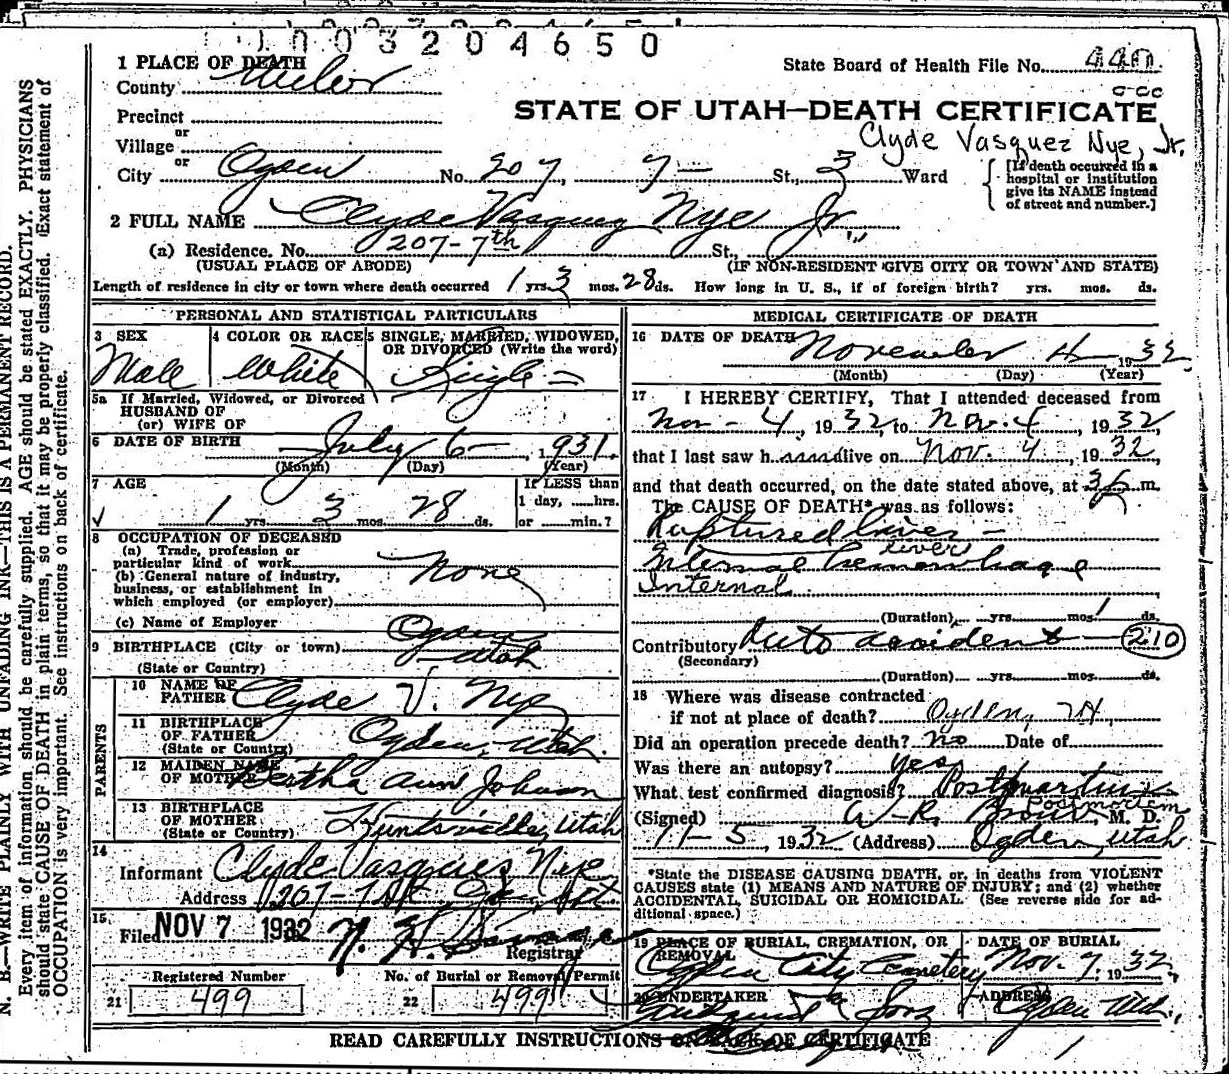 1003204650
1 PLACE OF DEATH
State Board of Health File No. 440
County Weber
STATE OF UTAH—DEATH CERTIFICATE
Precinct
or
Clyde Vasquez Nye, Jr.
Village
or
City Ogden No. 207, 7 St., 3 Ward
[If death occurred in a
hospital or institution
give its NAME instead
of street and number.]
2 FULL NAME Clyde Vasquez Nye Jr.
(a) Residence. No. 207-7th St.,
(USUAL PLACE OF ABODE) (IF NON-RESIDENT GIVE CITY OR TOWN AND STATE)
Length of residence in city or town where death occurred 1 yrs. 3 mos. 28 ds. How long in U. S., if of foreign birth? yrs. mos. ds.
PERSONAL AND STATISTICAL PARTICULARS
3 SEX 4 COLOR OR RACE 5 SINGLE, MARRIED, WIDOWED,
OR DIVORCED (Write the word)
Male White Single
5a If Married, Widowed, or Divorced
HUSBAND OF
(or) WIFE OF
6 DATE OF BIRTH July 6, 1931.
(Month) (Day) (Year)
7 AGE If LESS than
1 day, hrs.
1 yrs. 3 mos. 28 ds. or min.?
8 OCCUPATION OF DECEASED
(a) Trade, profession or
particular kind of work
None
(b) General nature of industry,
business, or establishment in
which employed (or employer)
(c) Name of Employer
9 BIRTHPLACE (City or town) Ogden
Utah
(State or Country)
PARENTS
10 NAME OF
FATHER Clyde V. Nye
11 BIRTHPLACE
OF FATHER Ogden, Utah.
(State or Country)
12 MAIDEN NAME
OF MOTHER Bertha Ann Johnson
13 BIRTHPLACE
OF MOTHER Huntsville, Utah
(State or Country)
14
Informant Clyde Vasques Nye
Address 207-7 St.
15
Filed NOV 7 1932
Registrar
Registered Number No. of Burial or Removal Permit
21 499 22 499
MEDICAL CERTIFICATE OF DEATH
16 DATE OF DEATH November 4 1932
(Month) (Day) (Year)
17 I HEREBY CERTIFY, That I attended deceased from
Nov - 4, 1932, to Nov. 4, 1932,
that I last saw h alive on Nov. 4, 1932,
and that death occurred, on the date stated above, at m.
The CAUSE OF DEATH* was as follows:
Ruptured liver
liver
Internal hemorrhage
Internal
(Duration) yrs. mos. 1 ds.
Contributory Auto accident 210
(Secondary)
(Duration) yrs. mos. ds.
18 Where was disease contracted
if not at place of death? Ogden, Ut.
Did an operation precede death? No Date of
Was there an autopsy? Yes
What test confirmed diagnosis? Postmortem
Postmortem
(Signed) W. R. Brown, M. D.
11-5, 1932 (Address) Ogden, Utah
*State the DISEASE CAUSING DEATH, or, in deaths from VIOLENT
CAUSES state (1) MEANS AND NATURE OF INJURY; and (2) whether
ACCIDENTAL, SUICIDAL OR HOMICIDAL. (See reverse side for ad-
ditional space.)
19 PLACE OF BURIAL, CREMATION, OR
REMOVAL DATE OF BURIAL
Ogden City Cemetery Nov. 7, 1932
20 UNDERTAKER ADDRESS
Sons Ogden Utah.
READ CAREFULLY INSTRUCTIONS ON BACK OF CERTIFICATE
N. B.—WRITE PLAINLY WITH UNFADING INK—THIS IS A PERMANENT RECORD.
Every item of information should be carefully supplied. AGE should be stated EXACTLY. PHYSICIANS
should state CAUSE OF DEATH in plain terms, so that it may be properly classified. Exact statement of
OCCUPATION is very important. See instructions on back of certificate.